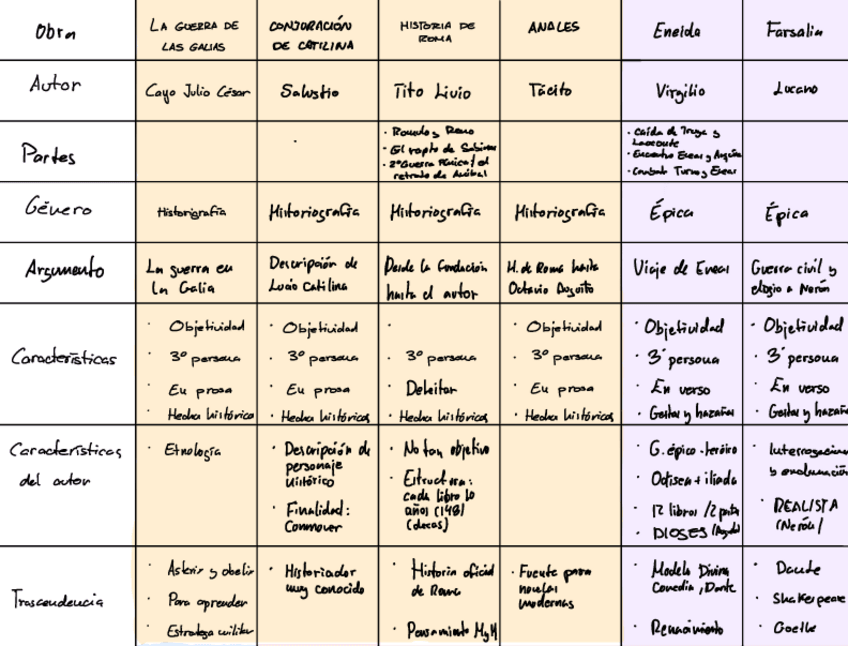 Obra
LA GUERRA DE
LAS GALIAS
CONJURACIÓN
DE CATILINA
HISTORIA DE
ROMA
ANALES
Eneida
Farsalia
Autor
Cayo Julio César
Salustio
Tito Livio
Tácito
Virgilio
Lucano
Partes
· Romulo y Remo
· El rapto de Sabinas
· 2ª Guerra Púnica / el
retrato de Aníbal
· Caída de Troya y
Laocoonte
· Encuentro Eneas y
· Combate Turno y Eneas
Género
Historigrafía
Historiografía
Historiografía
Historiografía
Épica
Épica
Argumento
La guerra en
la Galia
Descripción de
Lucio Catilina
Desde la fundación
hasta el autor
H. de Roma hasta
Octavio Augusto
Viaje de Eneas
Guerra civil y
elogio a Nerón
Características
· Objetividad
· 3º persona
· En prosa
· Hechos históricos
· Objetividad
· 3º persona
· En prosa
· Hechos históricos
·
· 3º persona
· Deleitar
· Hechos históricos
· Objetividad
· 3º persona
· En prosa
· Hechos históricos
· Objetividad
· 3º persona
· En verso
· Gestas y hazañas
· Objetividad
· 3º persona
· En verso
· Gestas y hazañas
Características
del autor
· Etnología
· Descripción de
personaje
histórico
· Finalidad:
Conmover
· No tan objetivo
· Estructura:
cada libro 10
años (148)
(decas)
· G. épico-heróico
· Odisea + iliada
· 12 libros / 2 partes
· DIOSES
· Interrogacion
y exclamación
· REALISTA
(Nerón)
Trascendencia
· Asterix y obelix
· Para aprender
· Estratega militar
· Historiador
muy conocido
· Historia oficial
de Roma
· Pensamiento MyM
· Fuente para
novelas
modernas
· Modelo Divina
Comedia, Dante
· Renacimiento
· Dante
· Shakespeare
· Goethe